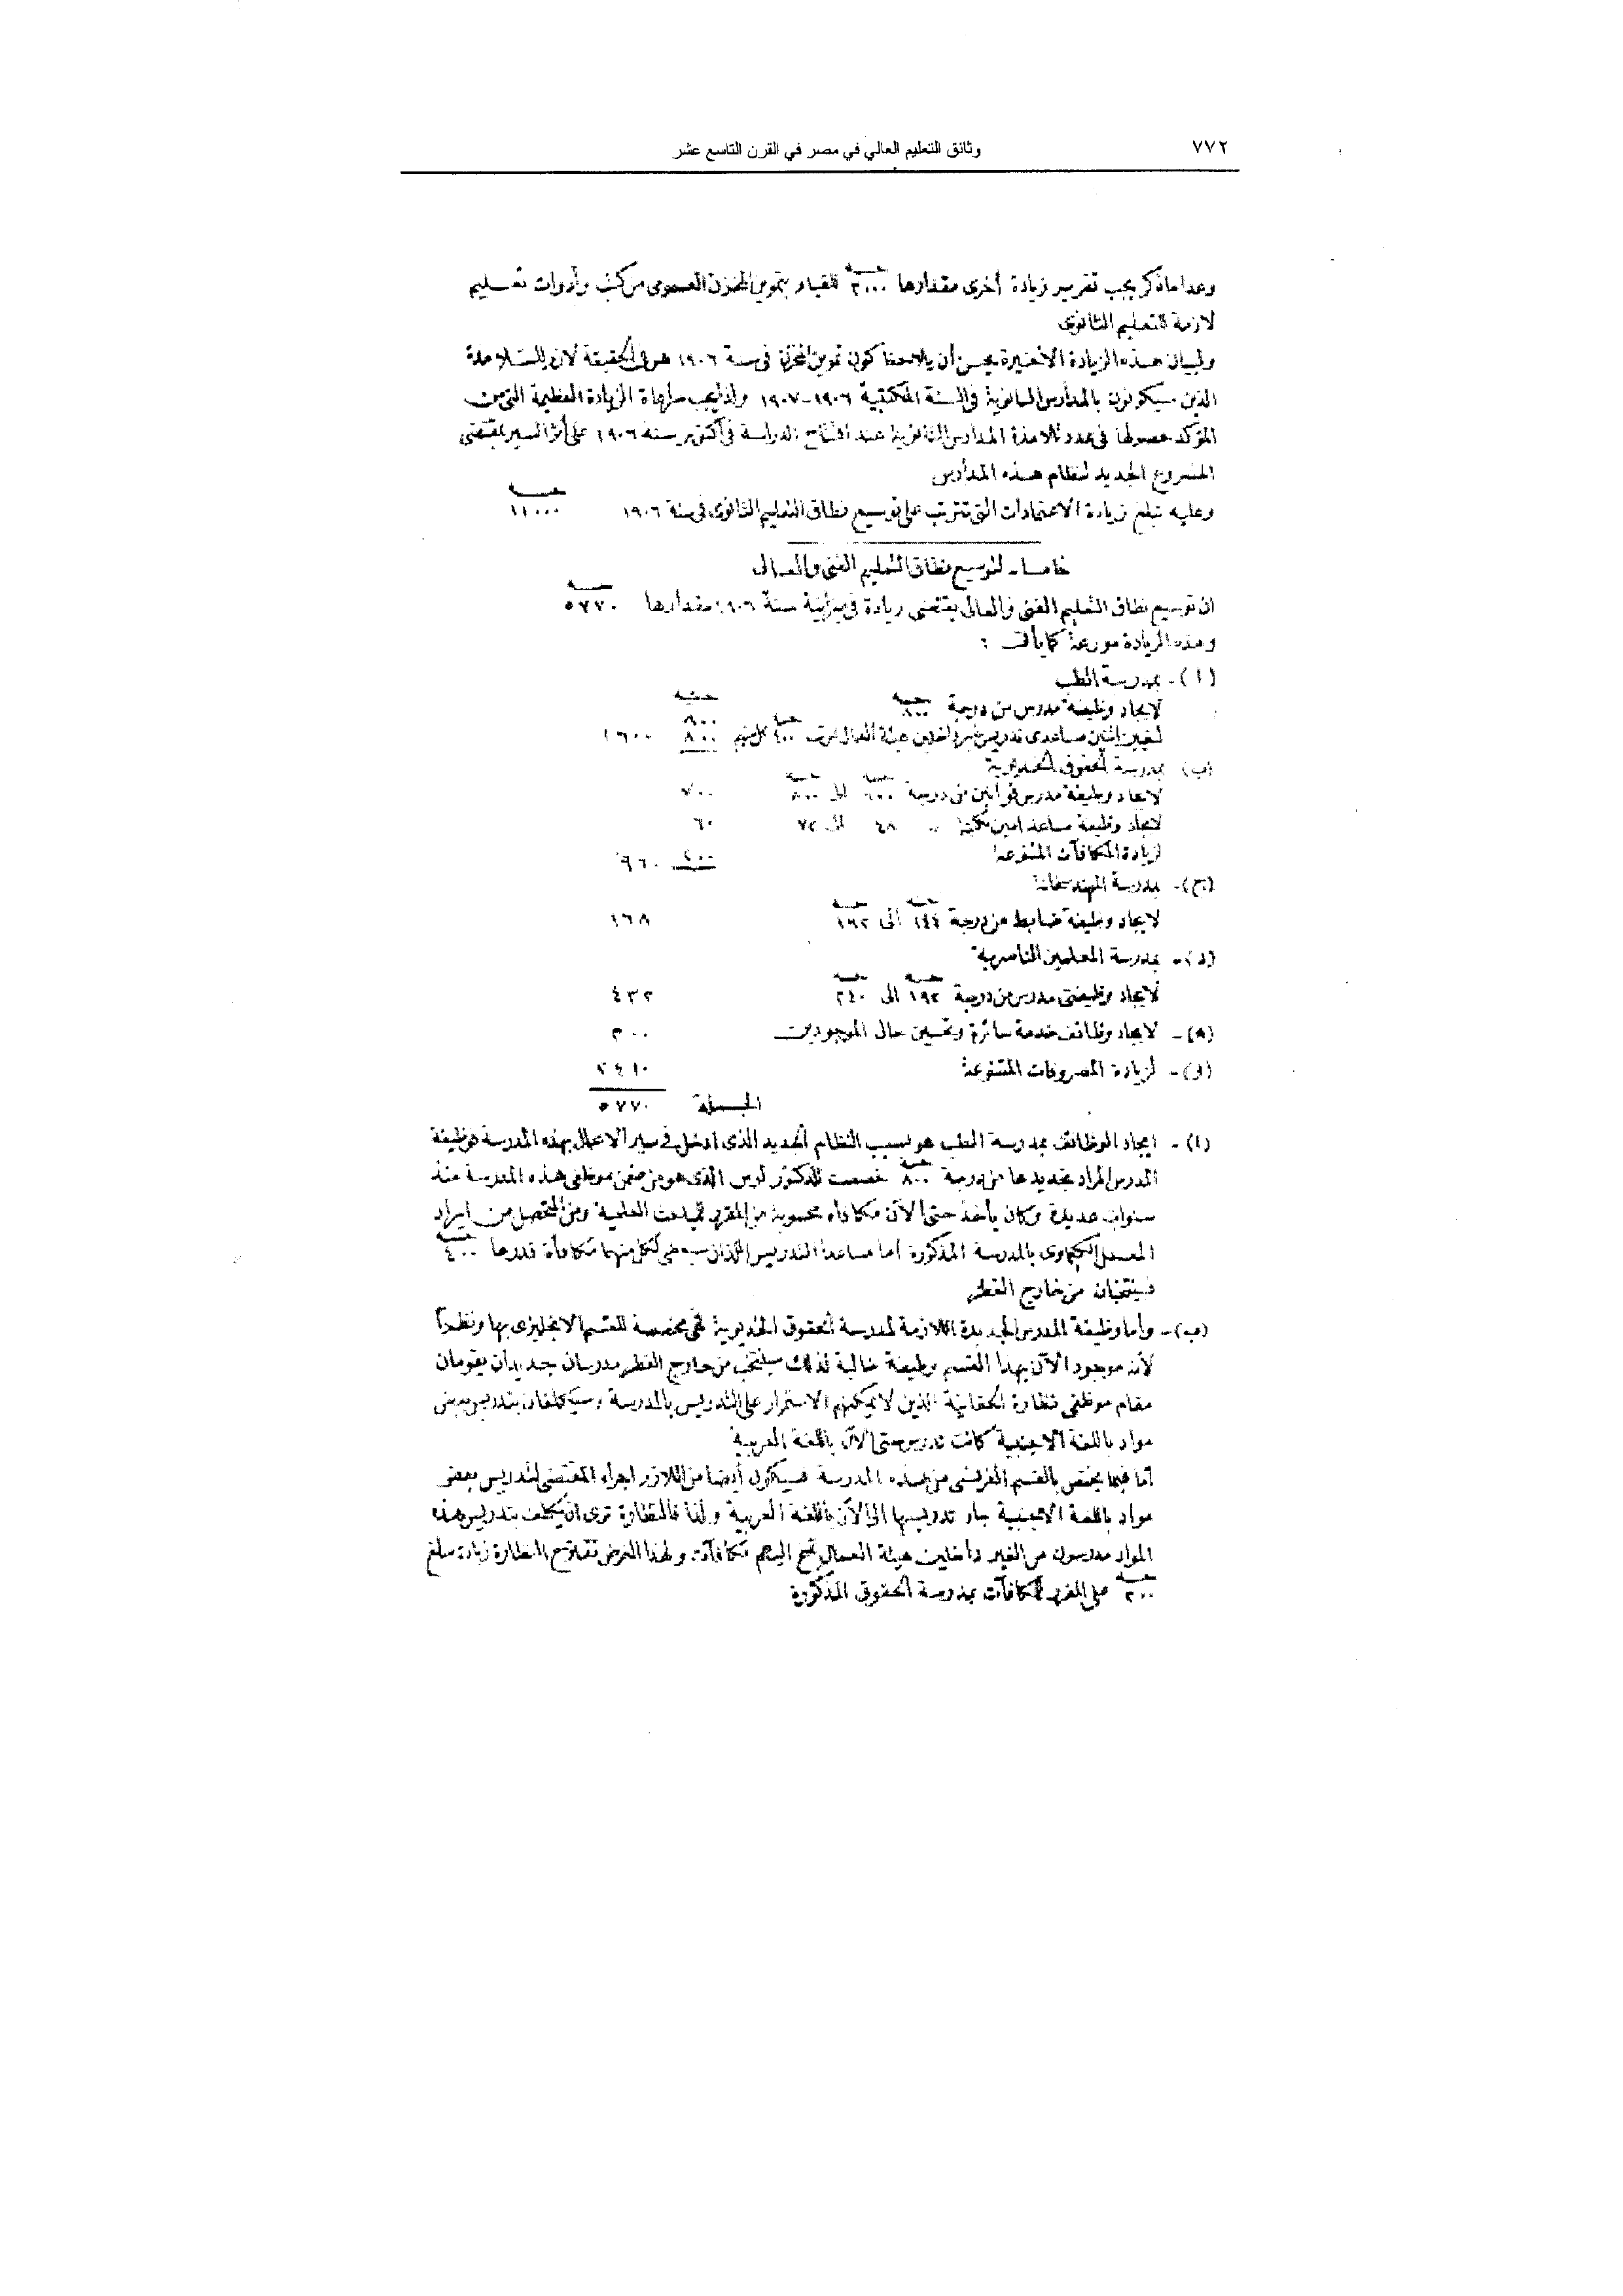 ٧٧٢
وثائق التعليم العالي في مصر في القرن التاسع عشر
وعدا ماذكر يجب تقرير زيادة أخرى مقدارها جنيه ٣٠٠٠ للقيام بتموين المخزن العمومى من كتب وأدوات تعليم
لازمة للتعليم الثانوى
ولبيان هذه الزيادة الأخيرة يحسن أن يلاحظ كون تموين المخزن فى سنة ١٩٠٦ هو فى الحقيقة لازم للتلامذة
الذين سيكونون بالمدارس الثانوية فى السنة المكتبية ١٩٠٦-١٩٠٧ ولذا يجب مراعاة الزيادة العظيمة التى من
المؤكد حصولها فى عدد تلامذة المدارس الثانوية عند افتتاح الدراسة فى أكتوبر سنة ١٩٠٦ على أثر السير بمقتضى
المشروع الجديد لنظام هذه المدارس
وعليه تبلغ زيادة الاعتمادات التى تترتب على توسيع نطاق التعليم الثانوى فى سنة ١٩٠٦ جنيه ١١٠٠٠
خامسا - لتوسيع نطاق التعليم الفنى والعالى
ان توسيع نطاق التعليم الفنى والعالى يقتضى زيادة فى ميزانية سنة ١٩٠٦ مقدارها جنيه ٥٧٧٠
وهذه الزيادة موزعة كما يأتى :
(ا) - بمدرسة الطب
لايجاد وظيفة مدرس من درجة جنيه ٨٠٠ جنيه ٨٠٠
لتعيين اثنين مساعدى تدريس غير داخلين هيئة العمال بمرتب جنيه ٤٠٠ لكل منهم ٨٠٠ ١٦٠٠
(ب) بمدرسة الحقوق الخديوية
لايجاد وظيفة مدرس قوانين من درجة جنيه ٦٠٠ الى جنيه ٨٠٠ ٧٠٠
لايجاد وظيفة مساعد امين مكتبة " ٤٨ الى ٧٢ ٦٠
لزيادة المكافآت المتنوعة ٢٠٠ ٩٦٠
(ج) - بمدرسة المهندسخانة
لايجاد وظيفة ضابط من درجة جنيه ١٤٤ الى جنيه ١٩٢ ١٦٨
(د) - بمدرسة المعلمين الناصرية
لايجاد وظيفتى مدرس من درجة جنيه ١٩٢ الى جنيه ٢٤٠ ٤٣٢
(ه) - لايجاد وظائف خدمة سائرة وتحسين حال الموجودين ٢٠٠
(و) - لزيادة المصروفات المتنوعة ٢٤١٠
الجملة ٥٧٧٠
(ا) - ايجاد الوظائف بمدرسة الطب هو بسبب النظام الجديد الذى ادخل فى سير الاعمال بهذه المدرسة فوظيفة
المدرس المراد تجديدها من درجة جنيه ٨٠٠ خصصت للدكتور لوس الذى هو من ضمن موظفى هذه المدرسة منذ
سنوات عديدة وكان يأخذ حتى الآن مكافاه محسوبة من المقرر للمباحث العلمية ومن المتحصل من ايراد
المعمل الكيماوى بالمدرسة المذكورة أما مساعدا التدريس اللذان سيعطى لكل منهما مكافأة قدرها جنيه ٤٠٠
فسينتخبان من خارج القطر
(ب) - وأما وظيفة المدرس الجديدة اللازمة لمدرسة الحقوق الخديوية فهى مخصصة للقسم الانجليزى بها ونظرا
لأنه موجود الآن بهذا القسم وظيفة خالية لذلك سينتخب من خارج القطر مدرسان جديدان يقومان
مقام موظفى نظارة الحقانية الذين لا يمكنهم الاستمرار على التدريس بالمدرسة وسيكلفان بتدريس بعض
مواد باللغة الاجنبية كانت تدرس حتى الآن باللغة العربية
أما فيما يختص بالقسم الفرنسى من هذه المدرسة فسيكون أيضا من اللازم اجراء المقتضى لتدريس بعض
مواد باللغة الاجنبية جار تدريسها الى الآن باللغة العربية ولذا فالنظارة ترى ان يكلف بتدريس هذه
المواد مدرسون من الغير داخلين هيئة العمال تمنح اليهم مكافآت ولهذا الغرض تقترح النظارة زيادة مبلغ
جنيه ٢٠٠ على المقرر للمكافآت بمدرسة الحقوق المذكورة